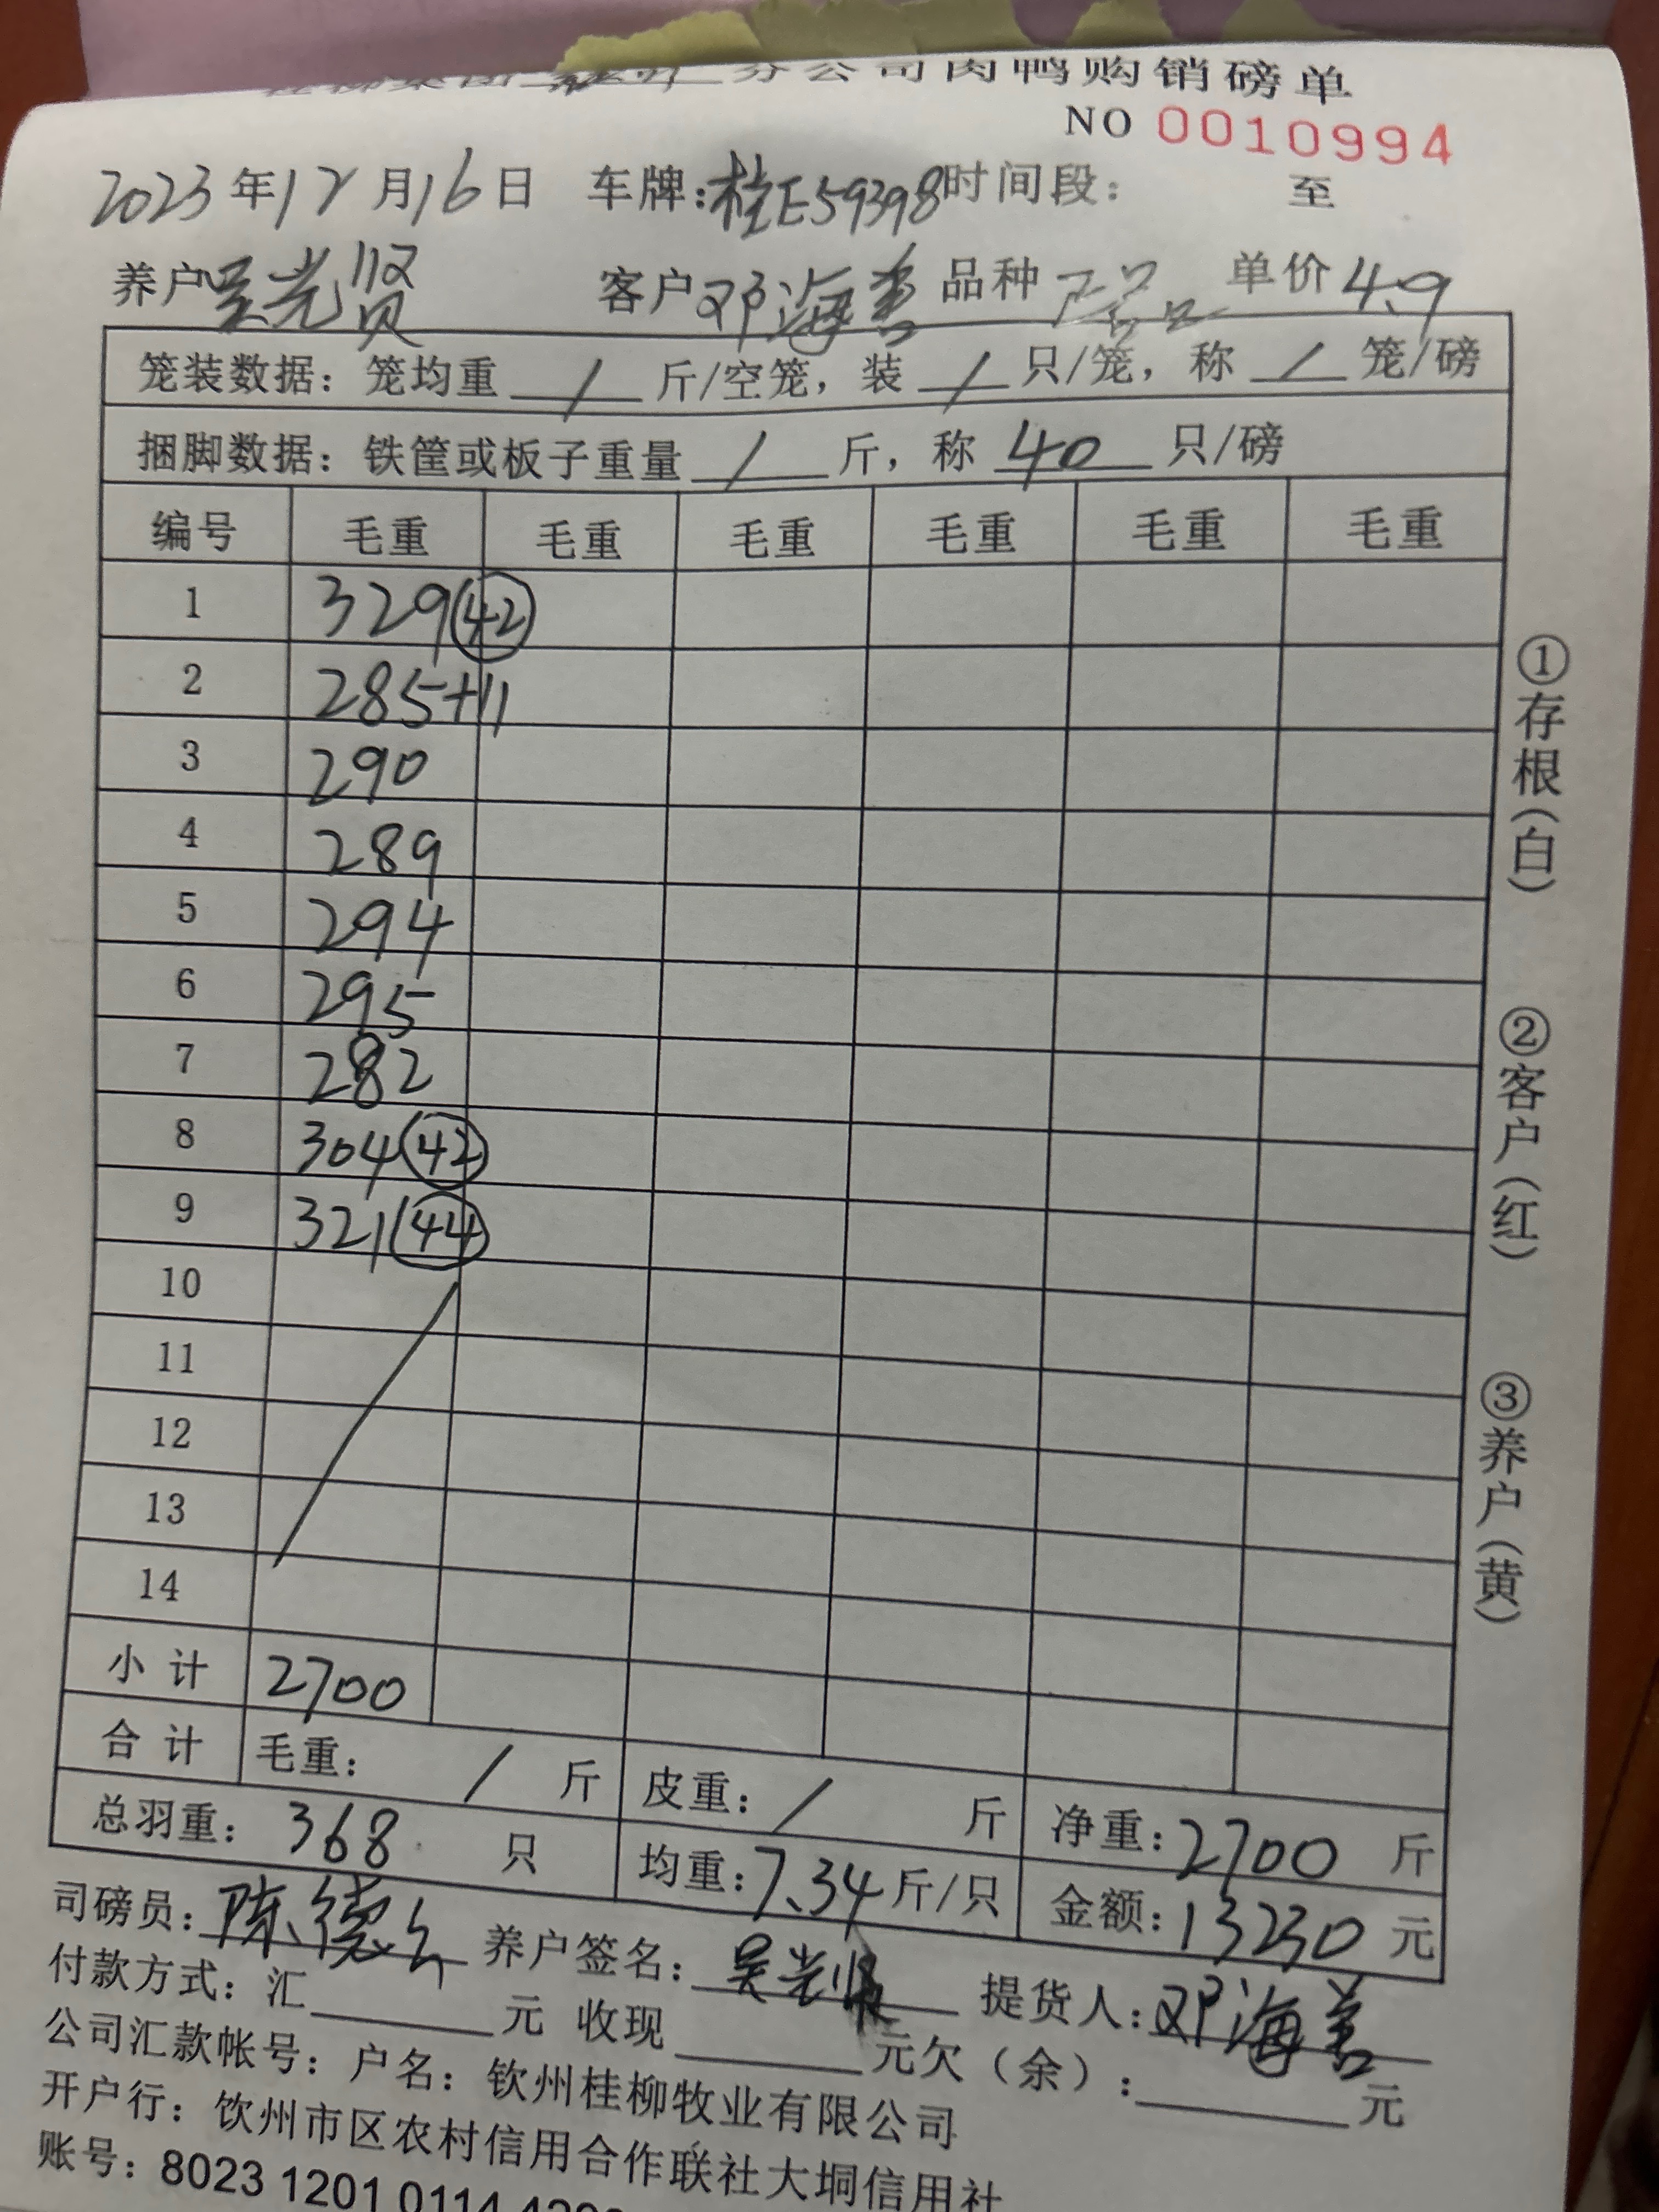 分公司肉鸭购销磅单
NO 0010994
2023年12月16日 车牌:桂E59398 时间段: 至
养户 吴光贤 客户 邓海善 品种 单价 4.9
笼装数据: 笼均重 / 斤/空笼, 装 / 只/笼, 称 / 笼/磅
捆脚数据: 铁筐或板子重量 / 斤, 称 40 只/磅
编号 毛重 毛重 毛重 毛重 毛重 毛重
1 329(42)
2 285+11
3 290
4 289
5 294
6 295
7 282
8 304(42)
9 321(44)
10
11
12
13
14
小计 2700
合计 毛重: / 斤 皮重: / 斤 净重: 2700 斤
总羽重: 368 只 均重: 7.34 斤/只 金额: 13230 元
司磅员: 陈德 养户签名: 吴光贤 提货人: 邓海善
付款方式: 汇 元 收现 元欠(余): 元
公司汇款帐号: 户名: 钦州桂柳牧业有限公司
开户行: 钦州市区农村信用合作联社大垌信用社
账号: 8023 1201 0114
①存根(白)
②客户(红)
③养户(黄)